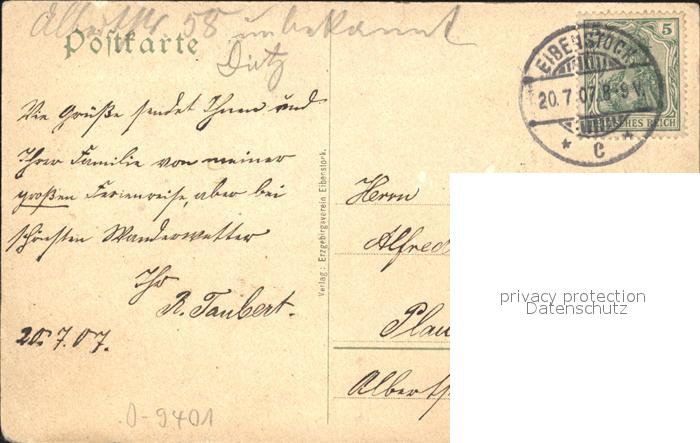 Albertstr 58 unbekannt
Postkarte
Dietz
Die Grüße sendet Ihnen und
Ihrer Familie von meiner
großen Ferienreise, aber bei
schönsten Wanderwetter
Ihr
R. Taubert.
20.7.07.
Verlag: Erzgebirgsverein Eibenstock.
EIBENSTOCK
20.7.07.8-9 V.
* C *
5
DEUTSCHES REICH
Herrn
Alfred
Plau
Alberts
privacy protection
Datenschutz
0-9401